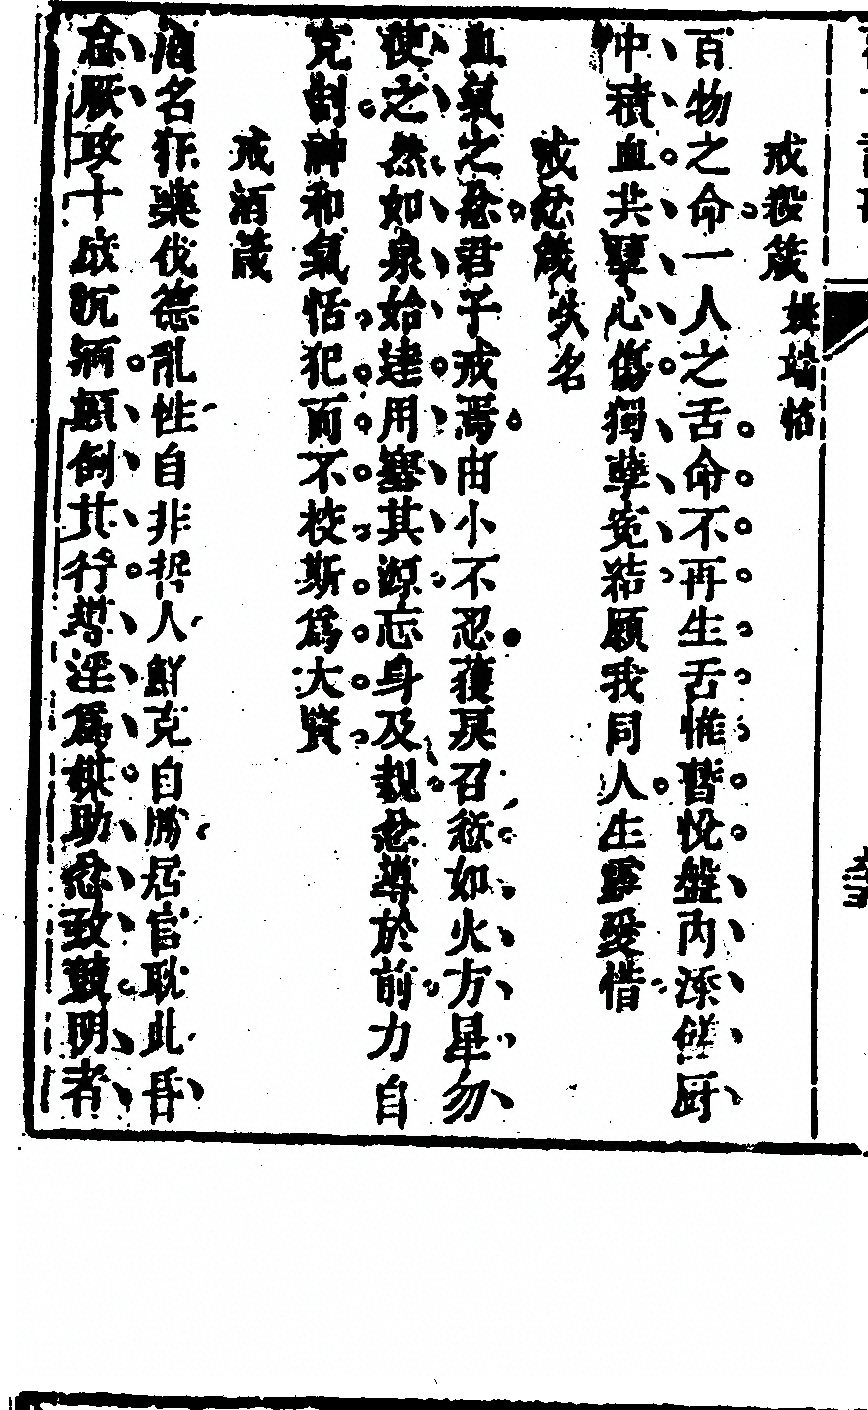 戒殺箴 姚端恪
百物之命一人之舌命不再生舌惟暫悅盤內添鮮厨
中積血共孽心傷獨孽寃結願我同人生靈愛惜
戒忿箴 失名
血氣之忿君子戒焉由小不忍獲戾召愆如火方星勿
使之然如泉始達用塞其源忘身及親忿導於前力自
克制神和氣恬犯而不校斯爲大賢
戒酒箴
酒名狂藥伐德亂性自非哲人鮮克自勝居官耽此昏
怠厥政士庶沉酒顛倒其行導淫爲媒助忿致競明者